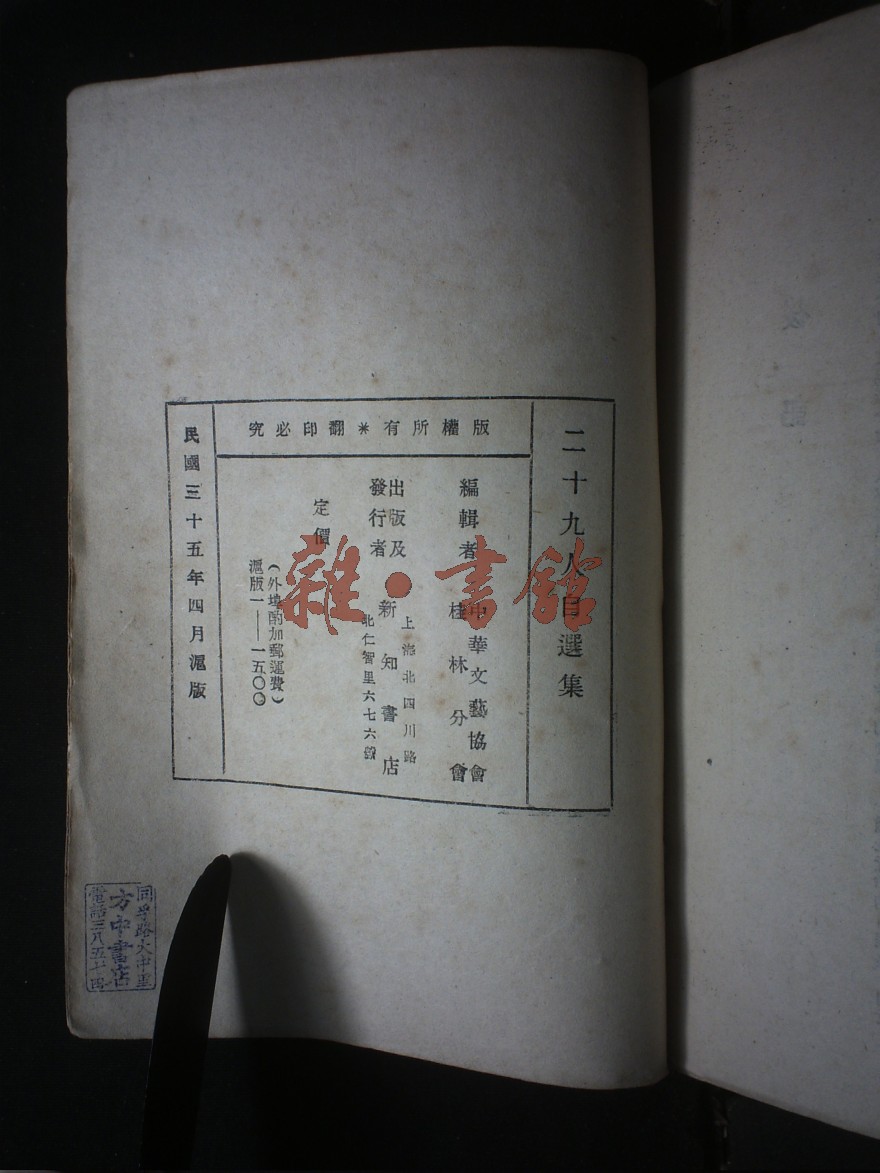 二十九人自選集
版權所有＊翻印必究
編輯者
中華文藝協會
桂林分會
出版及
發行者
新知書店
上海北四川路
北仁智里六七六號
定價
（外埠酌加郵運費）
滬版一——一五〇〇
民國三十五年四月滬版
雜·書館
同孚路大中里
方中書店
電話三八五七四